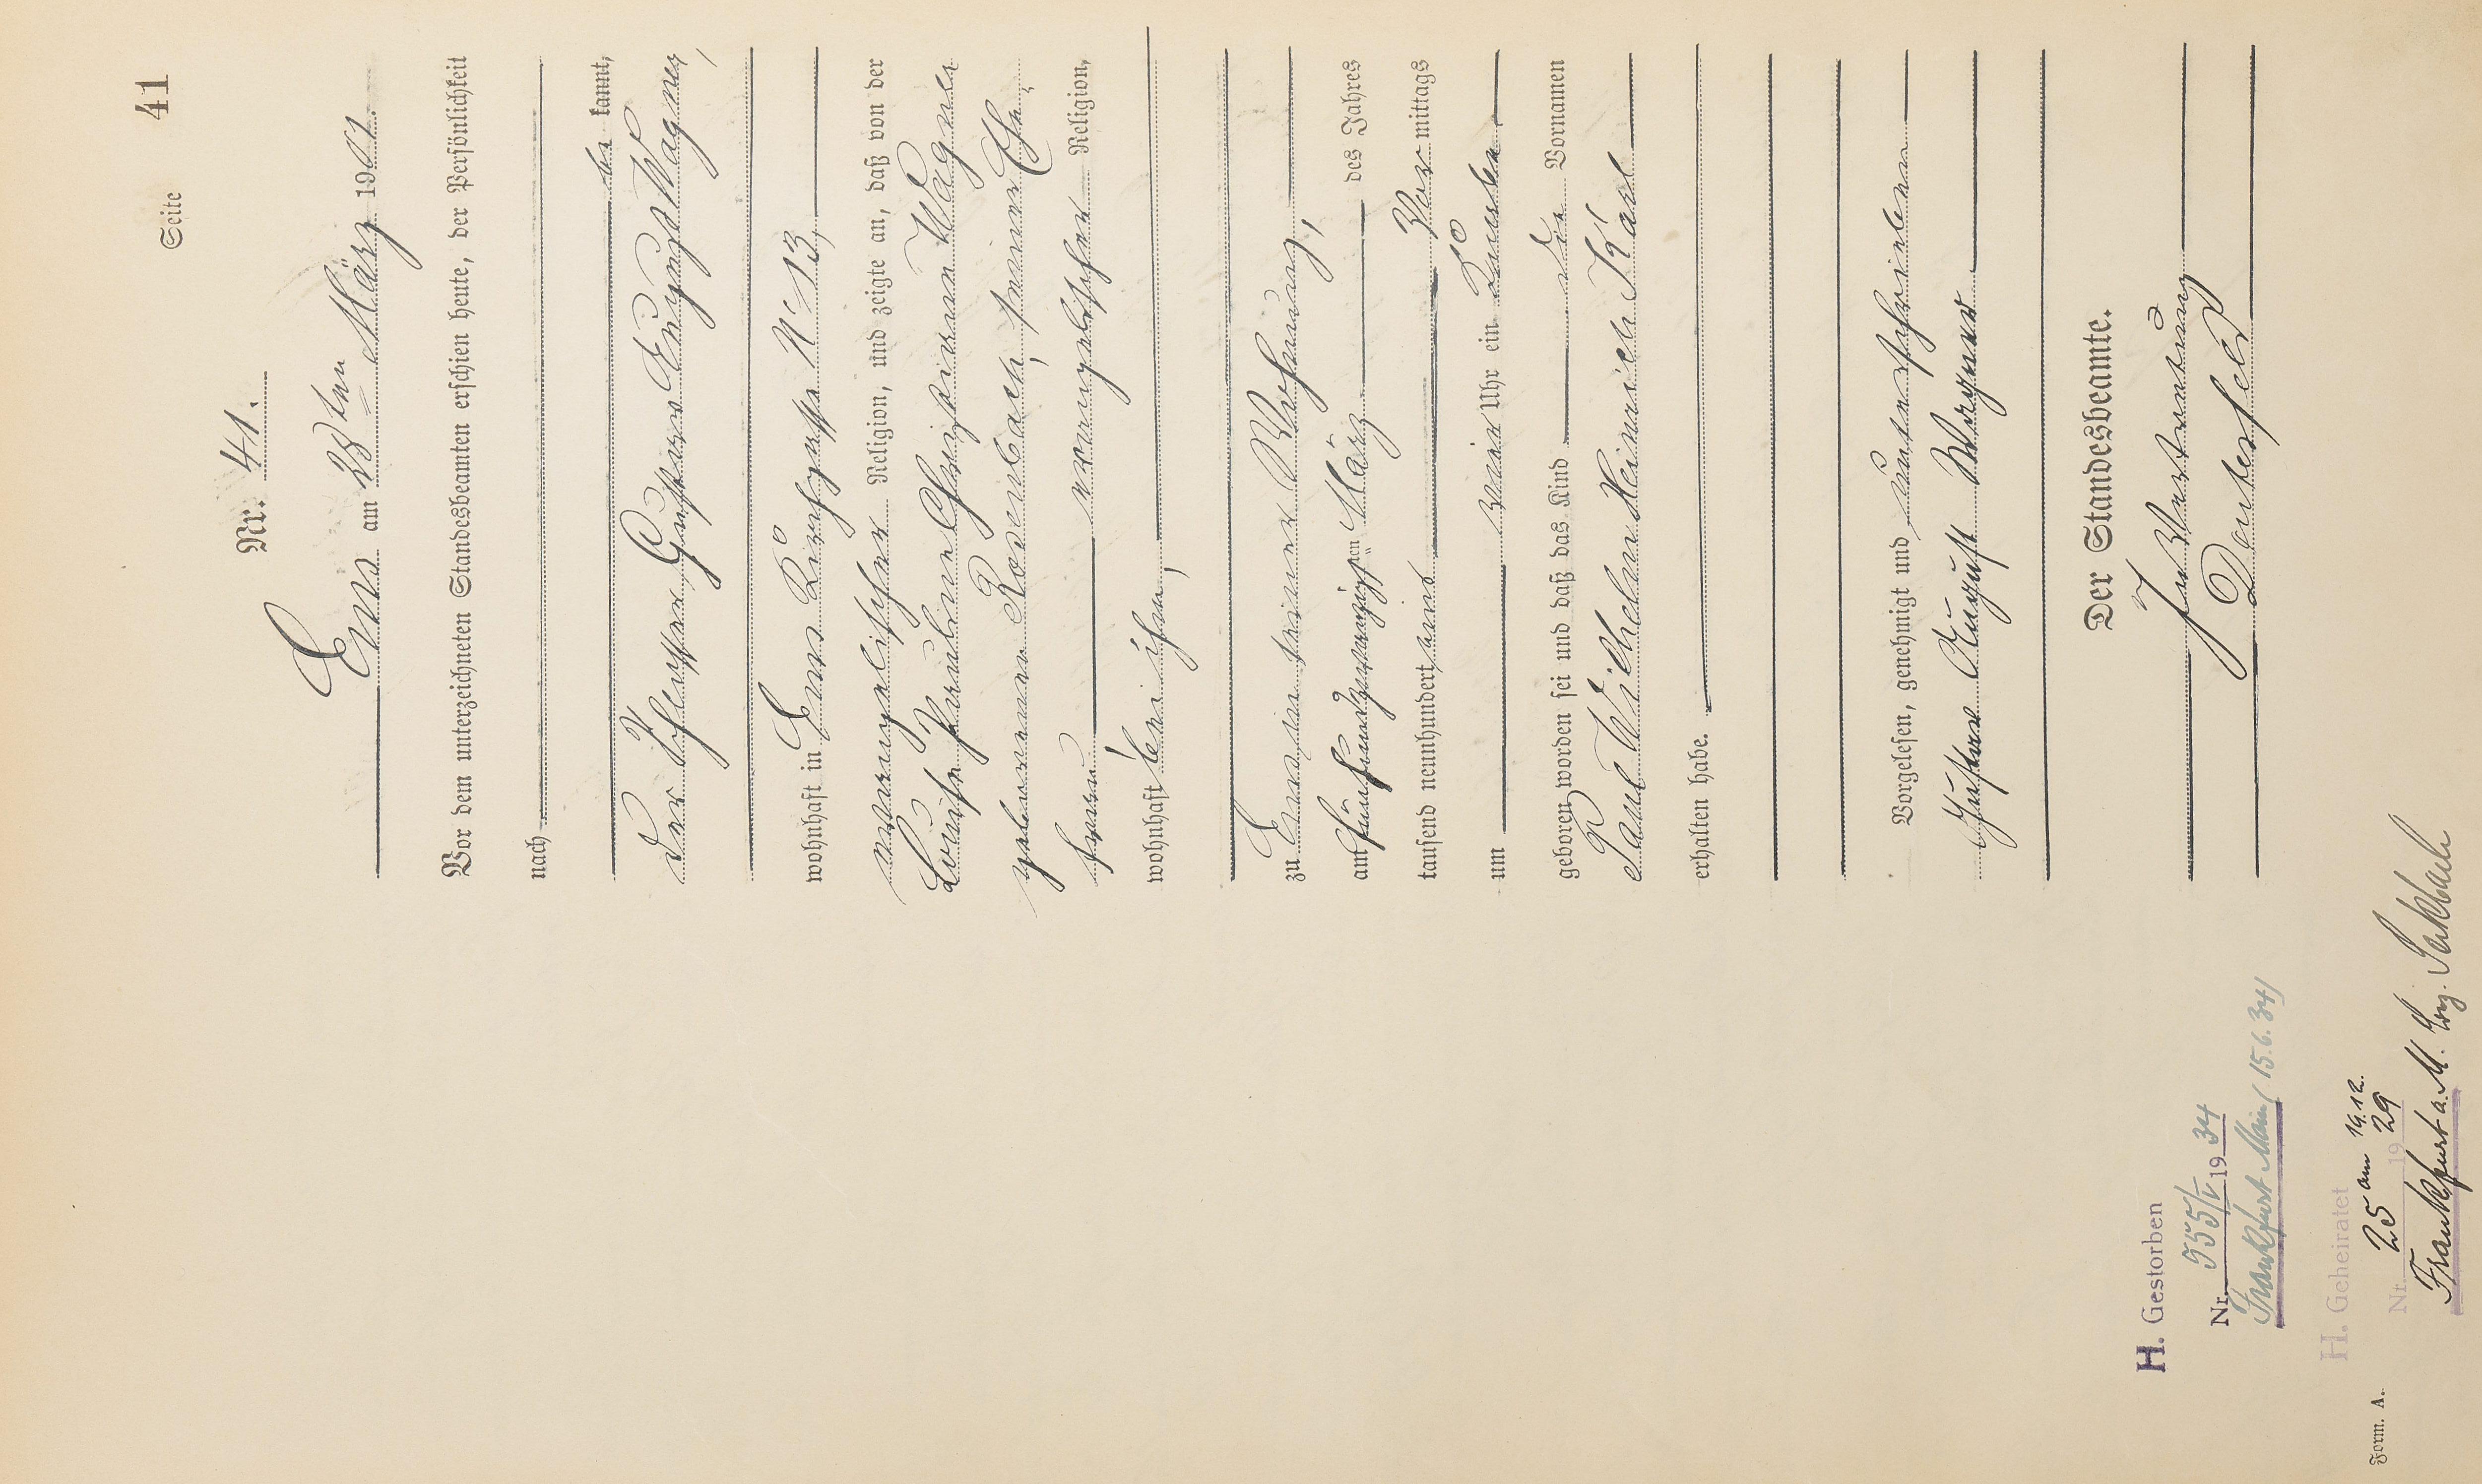 Seite 41
Nr. 41.
Ems am 28ten März 1901.
Vor dem unterzeichneten Standesbeamten erschien heute, der Persönlichkeit
nach
be kannt,
der Schlosser Gustav August Wagner,
wohnhaft in Ems Kirchgasse N 13,
evangelischer Religion, und zeigte an, daß von der
Louise Pauline Christiane Wagner
geborenen Rodenbach, seiner Ehe-
frau evangelischer Religion,
wohnhaft bei ihm,
zu Ems in seiner Wohnung,
am fünfundzwanzigsten März des Jahres
tausend neunhundert eins Vor mittags
um Uhr ein Knabe
geboren worden sei und daß das Kind die Vornamen
Paul Wilhelm Heinrich Karl
erhalten habe.
Vorgelesen, genehmigt und unterschrieben
Gustav August Wagner
Der Standesbeamte.
In Vertretung
H. Gestorben
Nr. 555/V 1934
Frankfurt Main (15.6.34)
H. Geheiratet
Nr. 25 am 19.12. 1929
Frankfurt a. M.
Form. A.